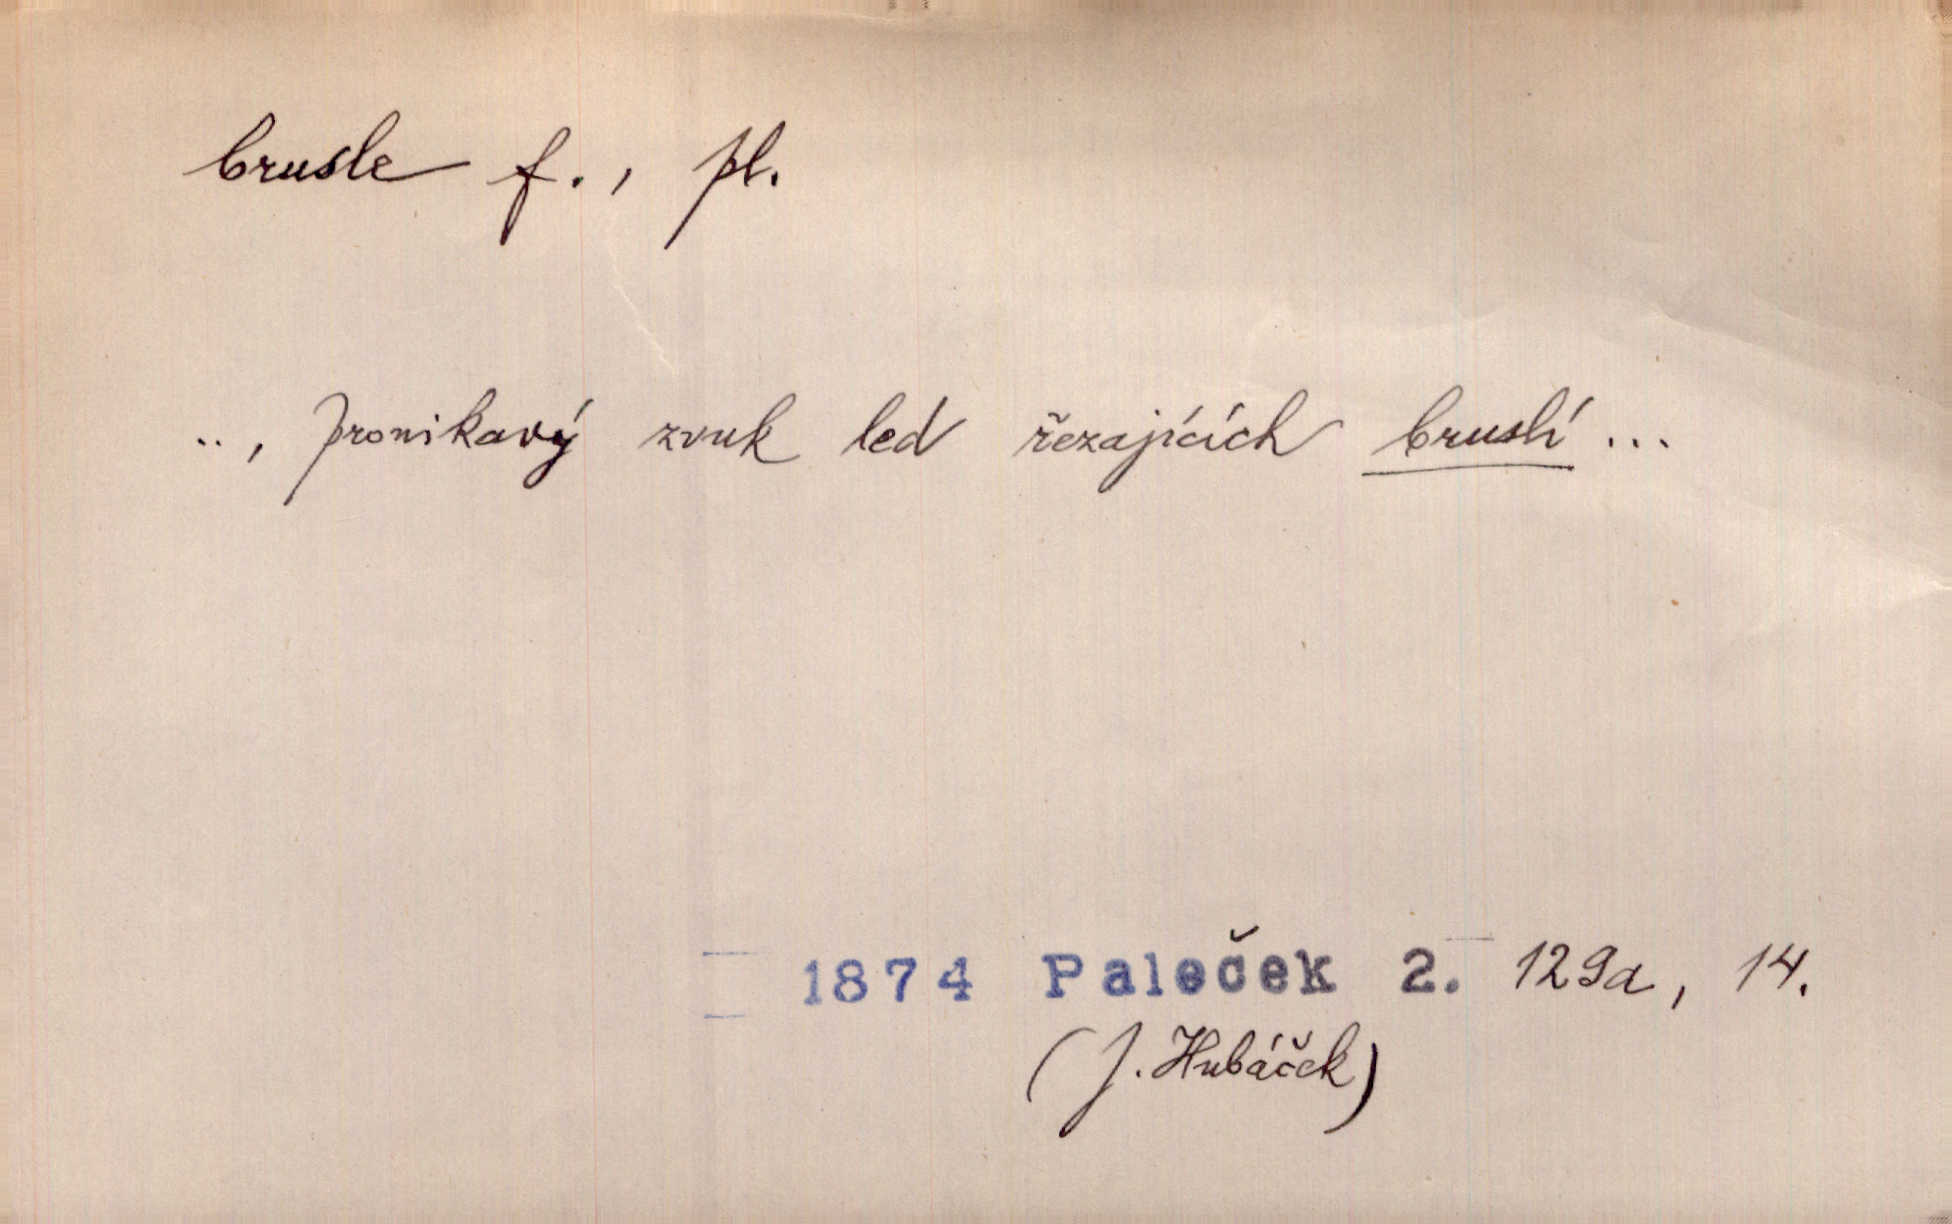 brusle f., pl.
.., pronikavý zvuk led řezajících bruslí ...
1874 Paleček 2. 129a, 14.
(J. Hubáček)